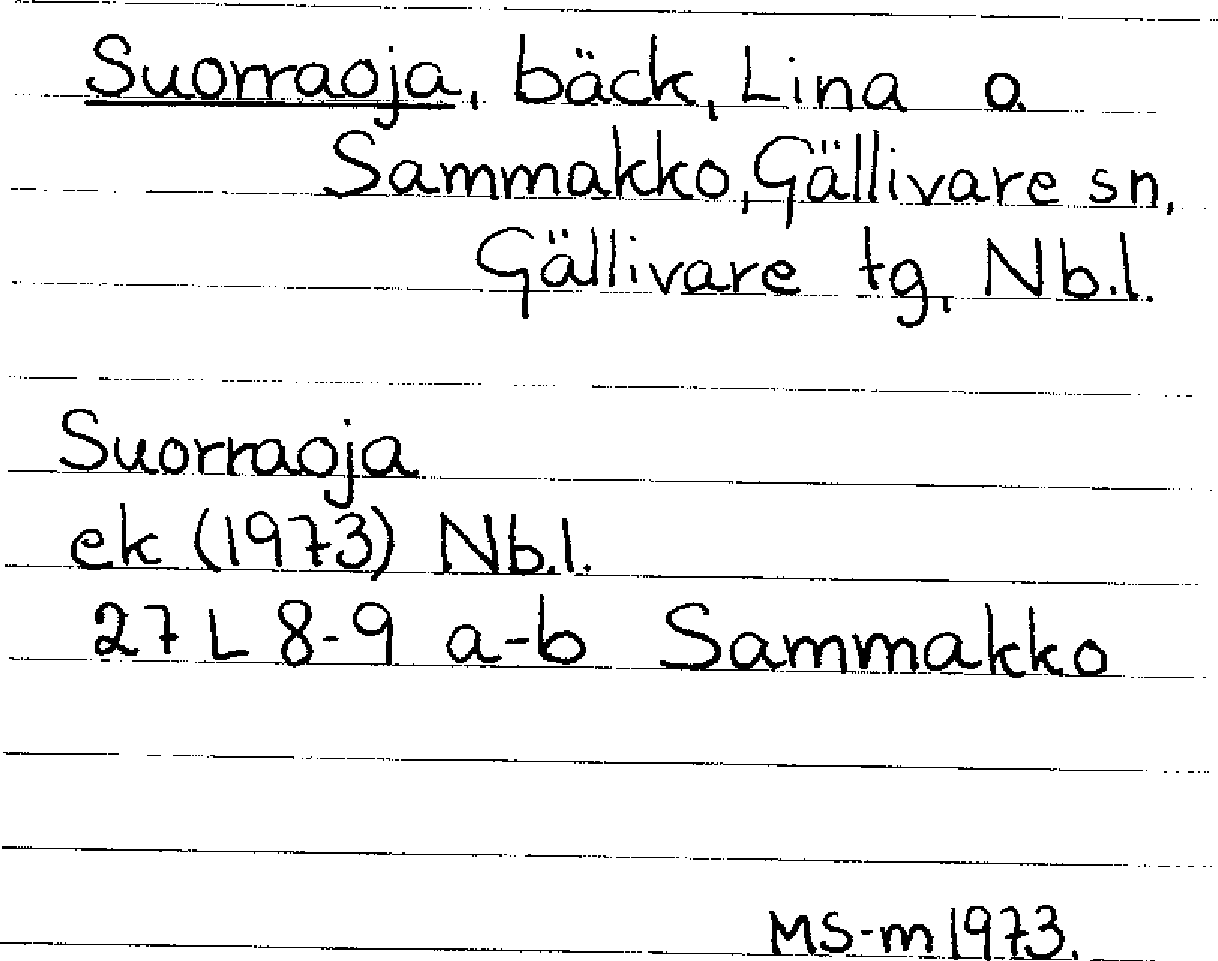 Suorraoja, bäck, Lina o
Sammakko, Gällivare sn,
Gällivare tg, Nb.l.
Suorraoja
ek (1973) Nb.l.
27 L 8-9 a-b Sammakko
MS-m 1973.